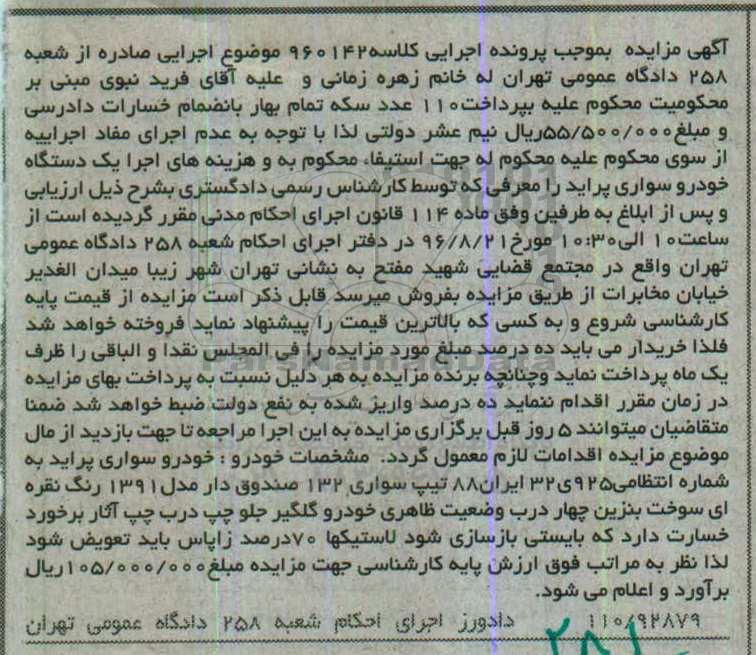 آگهی مزایده بموجب پرونده اجرایی کلاسه۹۶۰۱۴۲ موضوع اجرایی صادره از شعبه
۲۵۸ دادگاه عمومی تهران له خانم زهره زمانی و علیه آقای فرید نبوی مبنی بر
محکومیت محکوم علیه بپرداخت۱۱۰ عدد سکه تمام بهار بانضمام خسارات دادرسی
و مبلغ۵۵/۵۰۰/۰۰۰ریال نیم عشر دولتی لذا با توجه به عدم اجرای مفاد اجراییه
از سوی محکوم علیه محکوم له جهت استیفاء محکوم به و هزینه های اجرا یک دستگاه
خودرو سواری پراید را معرفی که توسط کارشناس رسمی دادگستری بشرح ذیل ارزیابی
و پس از ابلاغ به طرفین وفق ماده ۱۱۴ قانون اجرای احکام مدنی مقرر گردیده است از
ساعت۱۰ الی۱۰:۳۰ مورخ۹۶/۸/۲۱ در دفتر اجرای احکام شعبه ۲۵۸ دادگاه عمومی
تهران واقع در مجتمع قضایی شهید مفتح به نشانی تهران شهر زیبا میدان الغدیر
خیابان مخابرات از طریق مزایده بفروش میرسد قابل ذکر است مزایده از قیمت پایه
کارشناسی شروع و به کسی که بالاترین قیمت را پیشنهاد نماید فروخته خواهد شد
فلذا خریدار می باید ده درصد مبلغ مورد مزایده را فی المجلس نقدا و الباقی را ظرف
یک ماه پرداخت نماید وچنانچه برنده مزایده به هر دلیل نسبت به پرداخت بهای مزایده
در زمان مقرر اقدام ننماید ده درصد واریز شده به نفع دولت ضبط خواهد شد ضمنا
متقاضیان میتوانند ۵ روز قبل برگزاری مزایده به این اجرا مراجعه تا جهت بازدید از مال
موضوع مزایده اقدامات لازم معمول گردد. مشخصات خودرو : خودرو سواری پراید به
شماره انتظامی۹۲۵ی۳۲ ایران۸۸ تیپ سواری ۱۳۲ صندوق دار مدل۱۳۹۱ رنگ نقره
ای سوخت بنزین چهار درب وضعیت ظاهری خودرو گلگیر جلو چپ درب چپ آثار برخورد
خسارت دارد که بایستی بازسازی شود لاستیکها ۷۰درصد زاپاس باید تعویض شود
لذا نظر به مراتب فوق ارزش پایه کارشناسی جهت مزایده مبلغ۱۰۵/۰۰۰/۰۰۰ریال
برآورد و اعلام می شود.
۱۱۰/۹۲۸۷۹ دادورز اجرای احکام شعبه ۲۵۸ دادگاه عمومی تهران